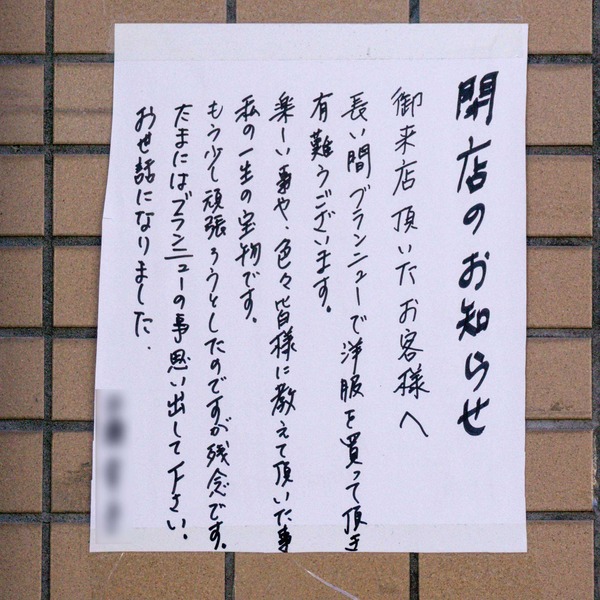 閉店のお知らせ
御来店頂いたお客様へ
長い間ブランニューで洋服を買って頂き
有難うございます。
楽しい事や、色々皆様に教えて頂いた事
私の一生の宝物です。
もう少し頑張ろうとしたのですが残念です。
たまにはブランニューの事思い出して下さい。
お世話になりました.